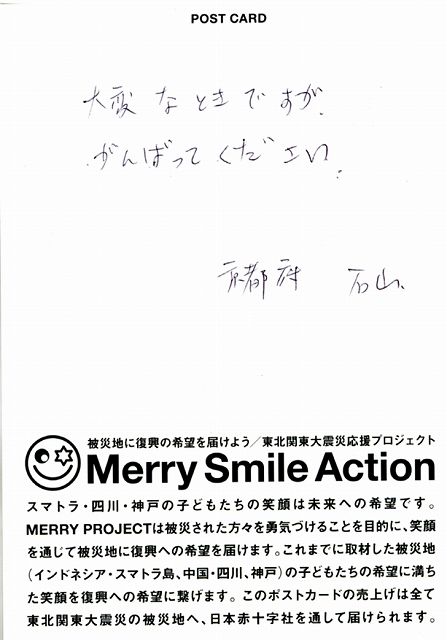 POST CARD
大変なときですが、
がんばってください。
京都府 石山
被災地に復興の希望を届けよう／東北関東大震災応援プロジェクト
Merry Smile Action
スマトラ・四川・神戸の子どもたちの笑顔は未来への希望です。
MERRY PROJECTは被災された方々を勇気づけることを目的に、笑顔
を通じて被災地に復興への希望を届けます。これまでに取材した被災地
（インドネシア・スマトラ島、中国・四川、神戸）の子どもたちの希望に満ち
た笑顔を復興への希望に繋げます。このポストカードの売上げは全て
東北関東大震災の被災地へ、日本赤十字社を通して届けられます。